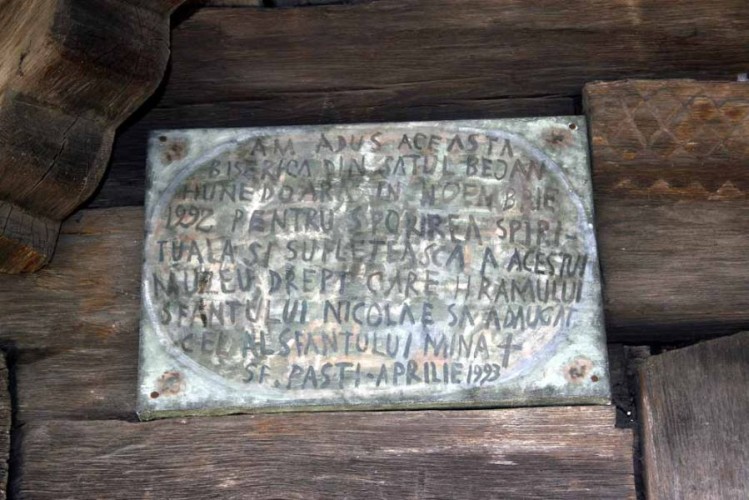 AM ADUS ACEASTA
BISERICA DIN SATUL BEJAN
HUNEDOARA IN NOEMBRIE
1992 PENTRU SPORIREA SPIRI-
TUALA SI SUFLETEASCA A ACESTUI
MUZEU, DREPT CARE HRAMULUI
SFANTULUI NICOLAE SA ADAUGAT
CEL AL SFANTULUI MINA †
SF. PASTI-APRILIE 1993